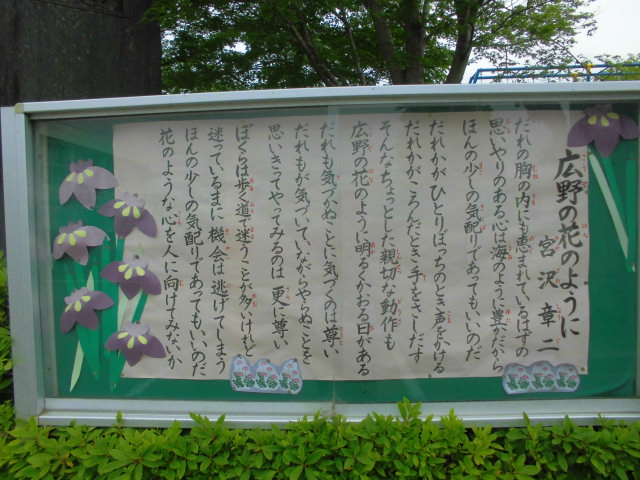 広野の花のように
宮沢章二
だれの胸の内にも恵まれているはずの
思いやりのある心は海のように豊かだから
ほんの少しの気配りであってもいいのだ
だれかがひとりぼっちのとき声をかける
だれかがころんだとき手をさしだす
そんなちょっとした親切な動作も
広野の花のように明るくかおる日がある
だれも気づかぬことに気づくのは尊い
だれもが気づいていながらやらぬことを
思いきってやってみるのは更に尊い
ぼくらは歩く道で迷うことが多いけれど
迷っているまに機会は逃げてしまう
ほんの少しの気配りであってもいいのだ
花のような心を人に向けてみないか